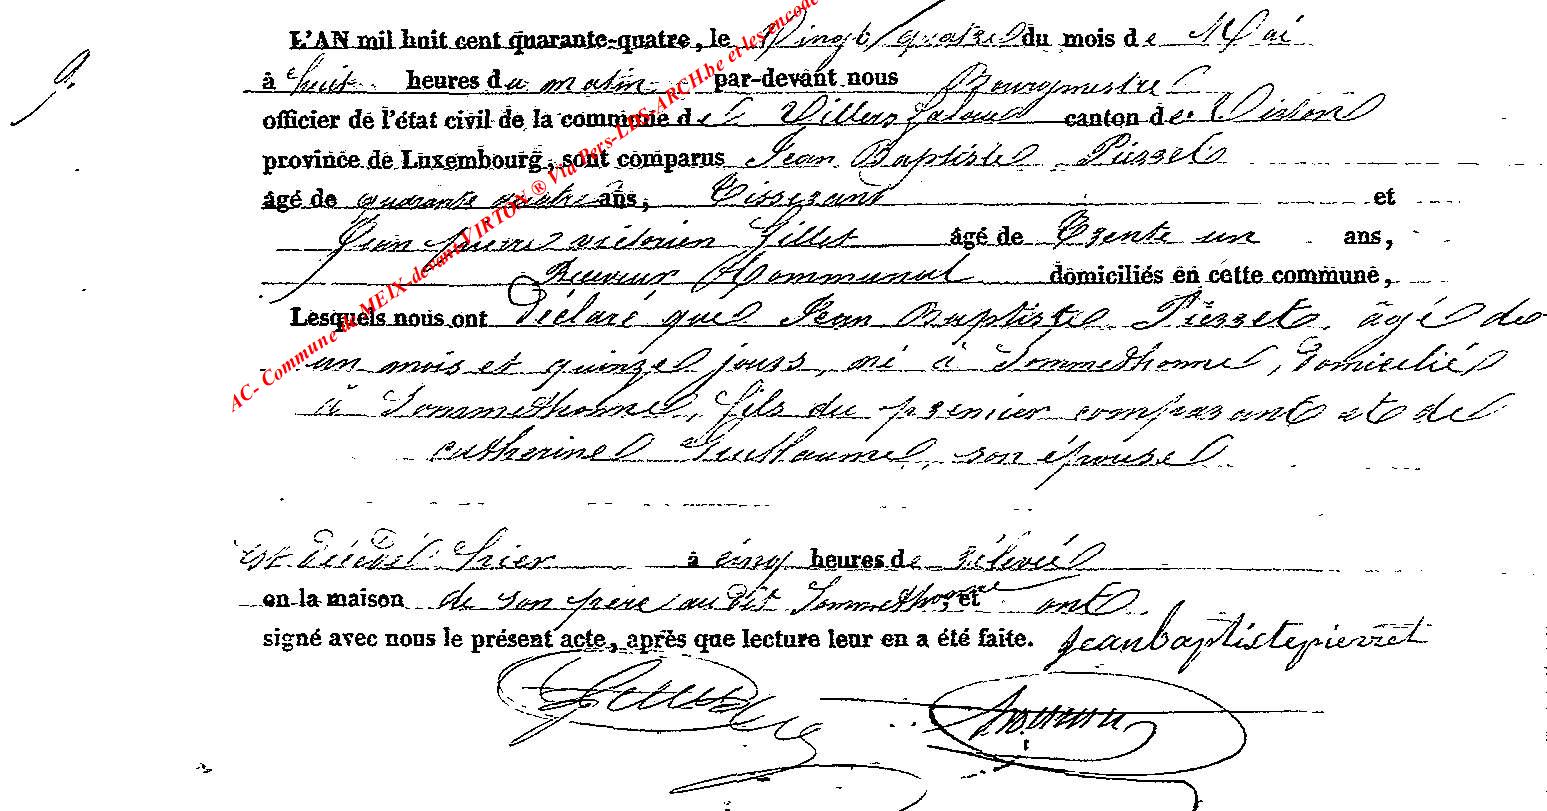 9.
L'AN mil huit cent quarante-quatre, le Vingt quatre du mois de Mai
à huit heures du matin par-devant nous Bourgmestre
officier de l'état civil de la commune de Villers Laloue canton de Virton
province de Luxembourg, sont comparus Jean Baptiste Pierret
âgé de quarante quatre ans, Tisserand et
Jean pierre victorien Gillet âgé de Trente un ans,
Receveur Communal domiciliés en cette commune,
Lesquels nous ont déclaré que Jean Baptiste Pierret, âgé de
un mois et quinze jours, né à Sommethonne, Domicilié
à Sommethonne, fils du premier comparant et de
catherine Guillaume, son épouse
est décédé hier à cinq heures de rélevée
en la maison de son père au dit Sommethonne, et ont
signé avec nous le présent acte, après que lecture leur en a été faite. jeanbaptistepierret
Gillet
AC- Commune de MEIX-devant-VIRTON ® Via Pers-LDS-ARCH.be et les encode